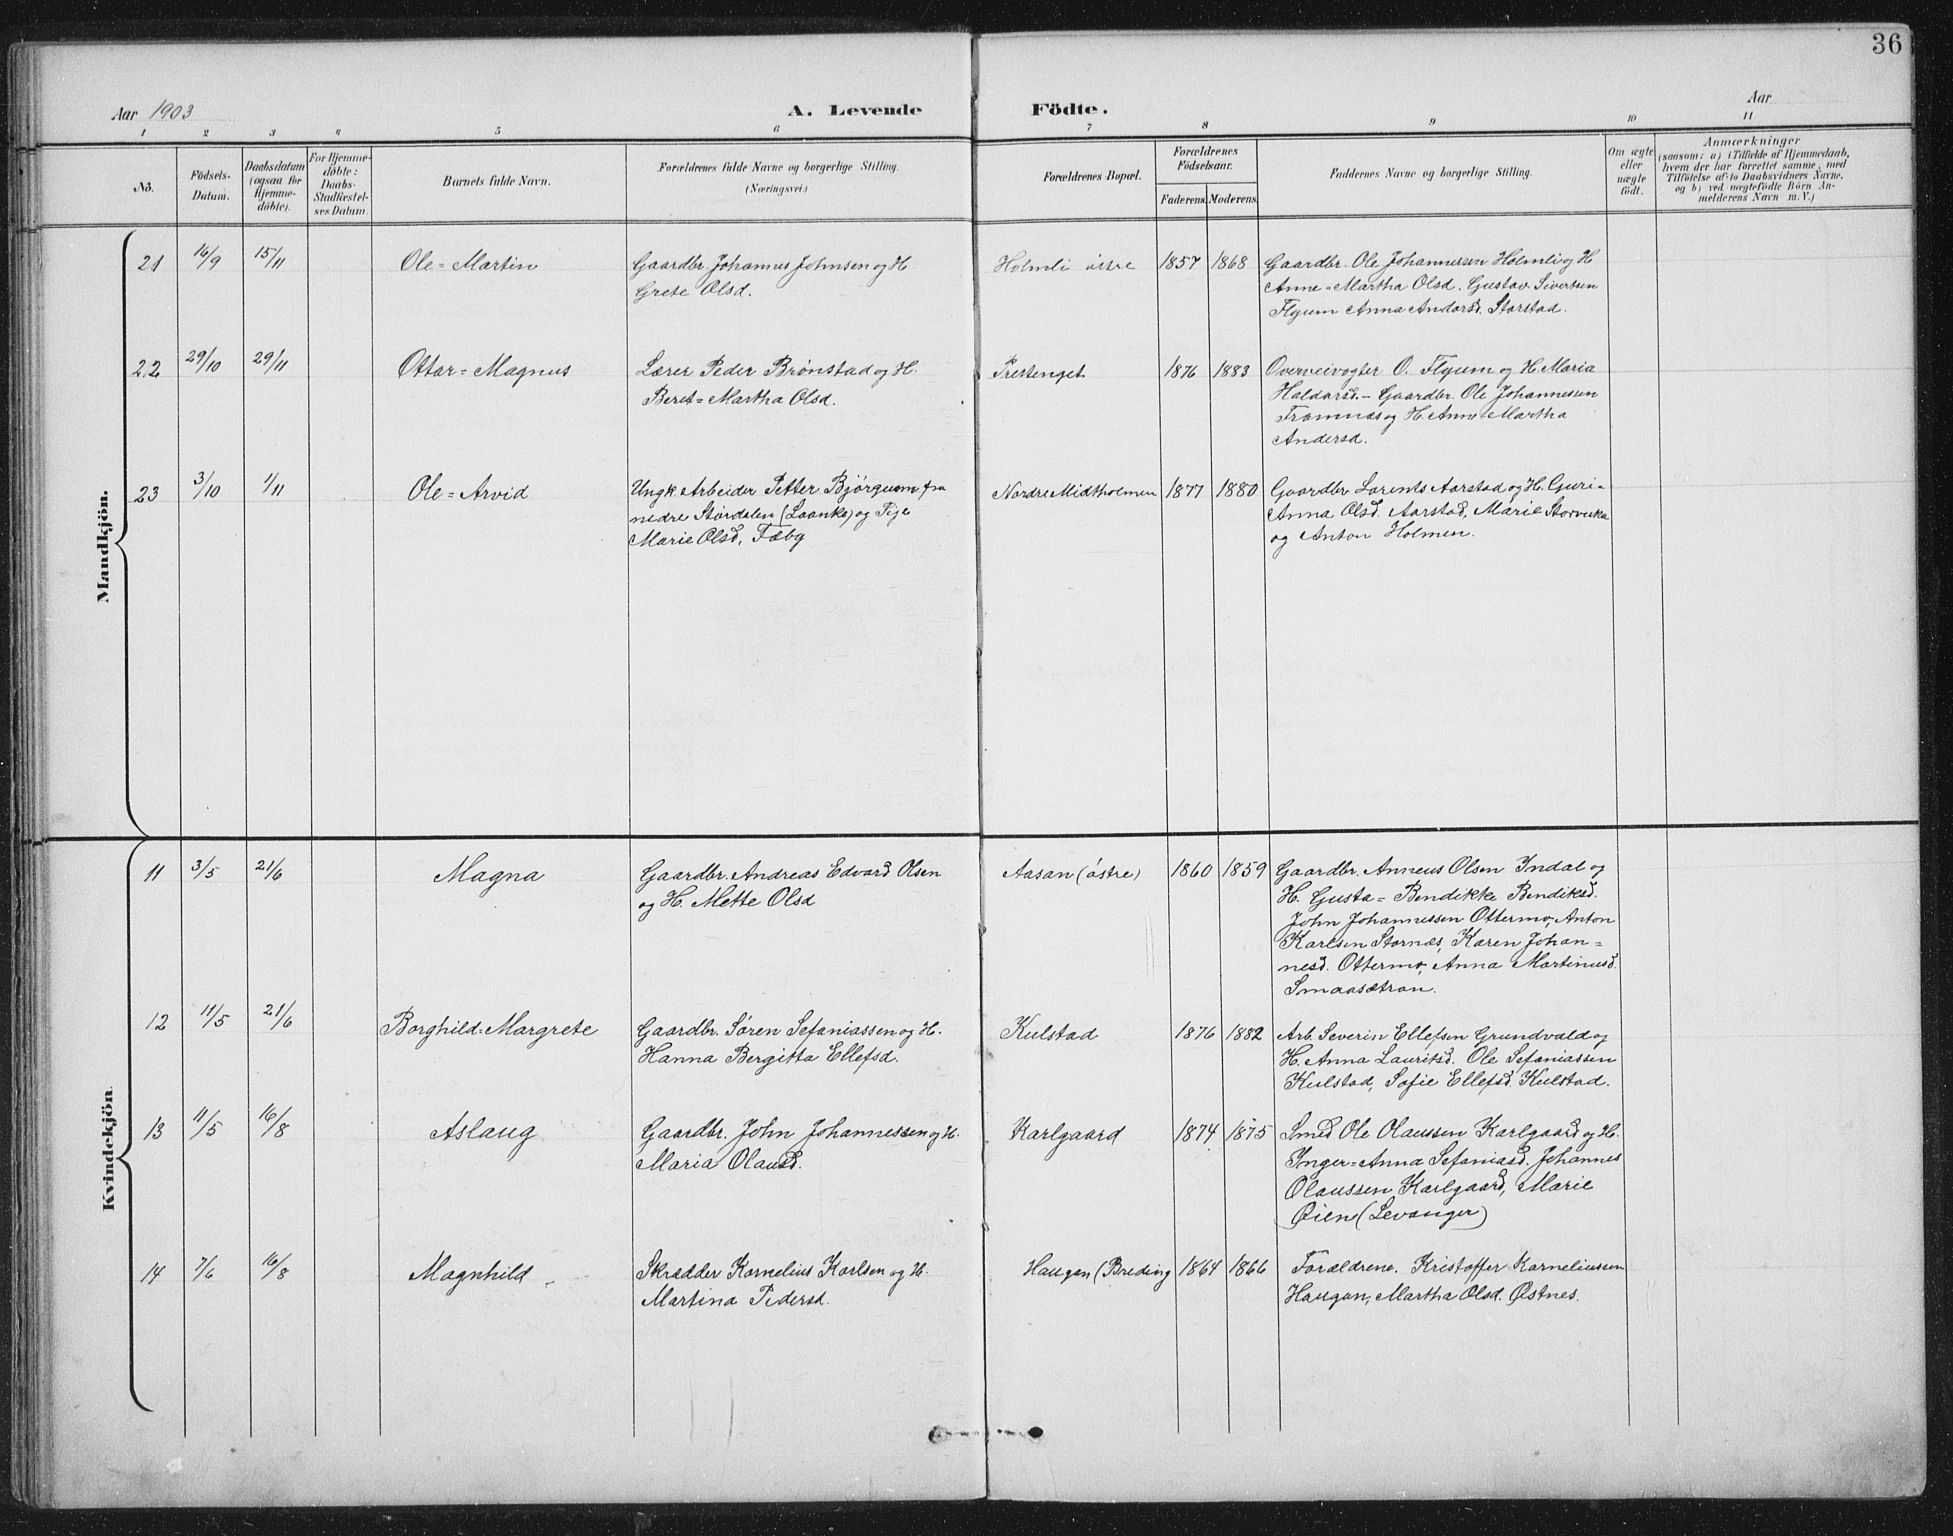 36
Aar 1903
A. Levende Födte.
Aar
1 2 3 4 5 6 7 8 9 10 11
No.
Födsels-Datum.
Daabsdatum (ogsaa for Hjemme-döbte).
For Hjemme-döbte: Daabs-Stadfæstel-ses Datum.
Barnets fulde Navn.
Forældrenes fulde Navne og borgerlige Stilling.
(Næringsvei.)
Forældrenes Bopæl.
Forældrenes Födselsaar.
Faderens. Moderens.
Faddernes Navne og borgerlige Stilling.
Om ægte eller uægte födt.
Anmærkninger
(saasom: a) i Tilfælde af Hjemmedaab,
hvem der har forrettet samme, med
Tilföielse af to Daabsvidners Navne,
og b) ved uægtefödte Börn An-
melderens Navn m. V.)
Mandkjön.
21 16/9 15/11 Ole=Martin Gaardbr. Johannes Johnsen og H Holmli östre 1857 1868 Gaardbr. Ole Johannessen Holmli og H
Grete Olsd. Anne=Martha Olsd. Gustav Sivertsen
Flyum Anna Andorsd. Storstad.
22 29/10 29/11 Ottar=Magnus Lærer Peder Brønstad og H. Prestenget 1876 1883 Overveivogter O. Flyum og H. Maria
Beret=Martha Olsd. Haldorsd. – Gaardbr. Ole Johannessen
Tromnæs og H. Anne=Martha
Andersd.
23 3/10 1/11 Ole=Arvid Ungk. Arbeider Petter Bjørgum fra Nordre Midtholmen 1877 1880 Gaardbr Lorents Aarstad og H. Guri=
nedre Størdalen (Laanke) og Pige Anna Olsd. Aarstad, Marie Storvuka
Marie Olsd, Fæby og Anton Holmen.
Kvindekjön
11 3/5 21/6 Magna Gaardbr. Andreas Edvard Olsen Aasan (østre) 1860 1859 Gaardbr. Anneus Olsen Indal og
og H. Mette Olsd H. Gusta=Bendikke Bendiksd.
John Johannessen Ottermo, Anton
Karlsen Stornæs, Karen Johan=
nesd. Ottermo, Anna Martinusd.
Smaasætran.
12 11/5 21/6 Borghild=Margrete Gaardbr. Søren Sefaniassen og H. Kulstad 1876 1882 Arb. Severin Ellefsen Grundvald og
Hanna Bergitta Ellefsd. H. Anna Lauritsd. Ole Sefaniassen
Kulstad, Sofie Ellefsd. Kulstad.
13 11/5 16/8 Aslaug Gaardbr. John Johannessen og H. Karlgaard 1874 1875 Smed Ole Olaussen Karlgaard og H.
Maria Olausd. Inger=Anna Sefaniasd. Johannes
Olaussen Karlgaard, Marie
Øien (Levanger)
14 7/6 16/8 Magnhild Skrædder Kornelius Karlsen og H. Haugan (Breding 1864 1866 Forældrene. Kristoffer Korneliussen
Martina Pedersd. Haugan, Martha Olsd. Østnes.